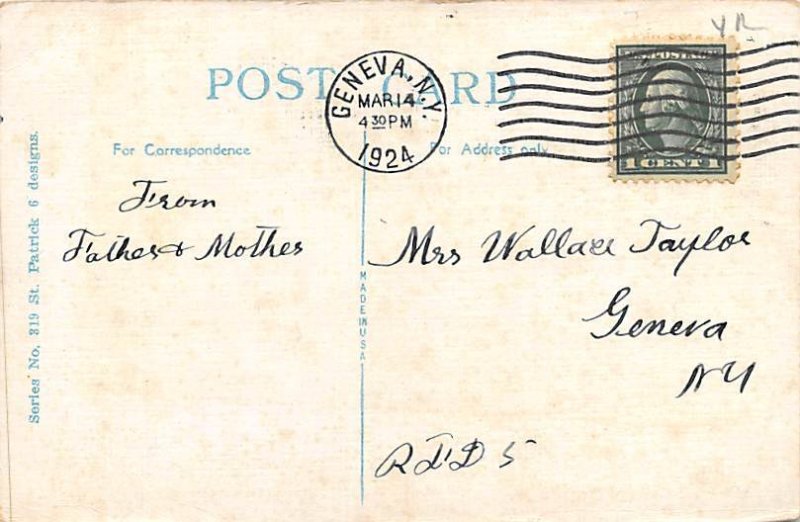 YR
POST CARD
GENEVA, N.Y.
MAR 14
4 30 PM
1924
U.S. POSTAGE
1 CENT 1
For Correspondence
For Address only
From
Father & Mother
Mrs Wallace Taylor
Geneva
NY
R.F.D 5
MADE IN USA
Series No. 319 St. Patrick 6 designs.